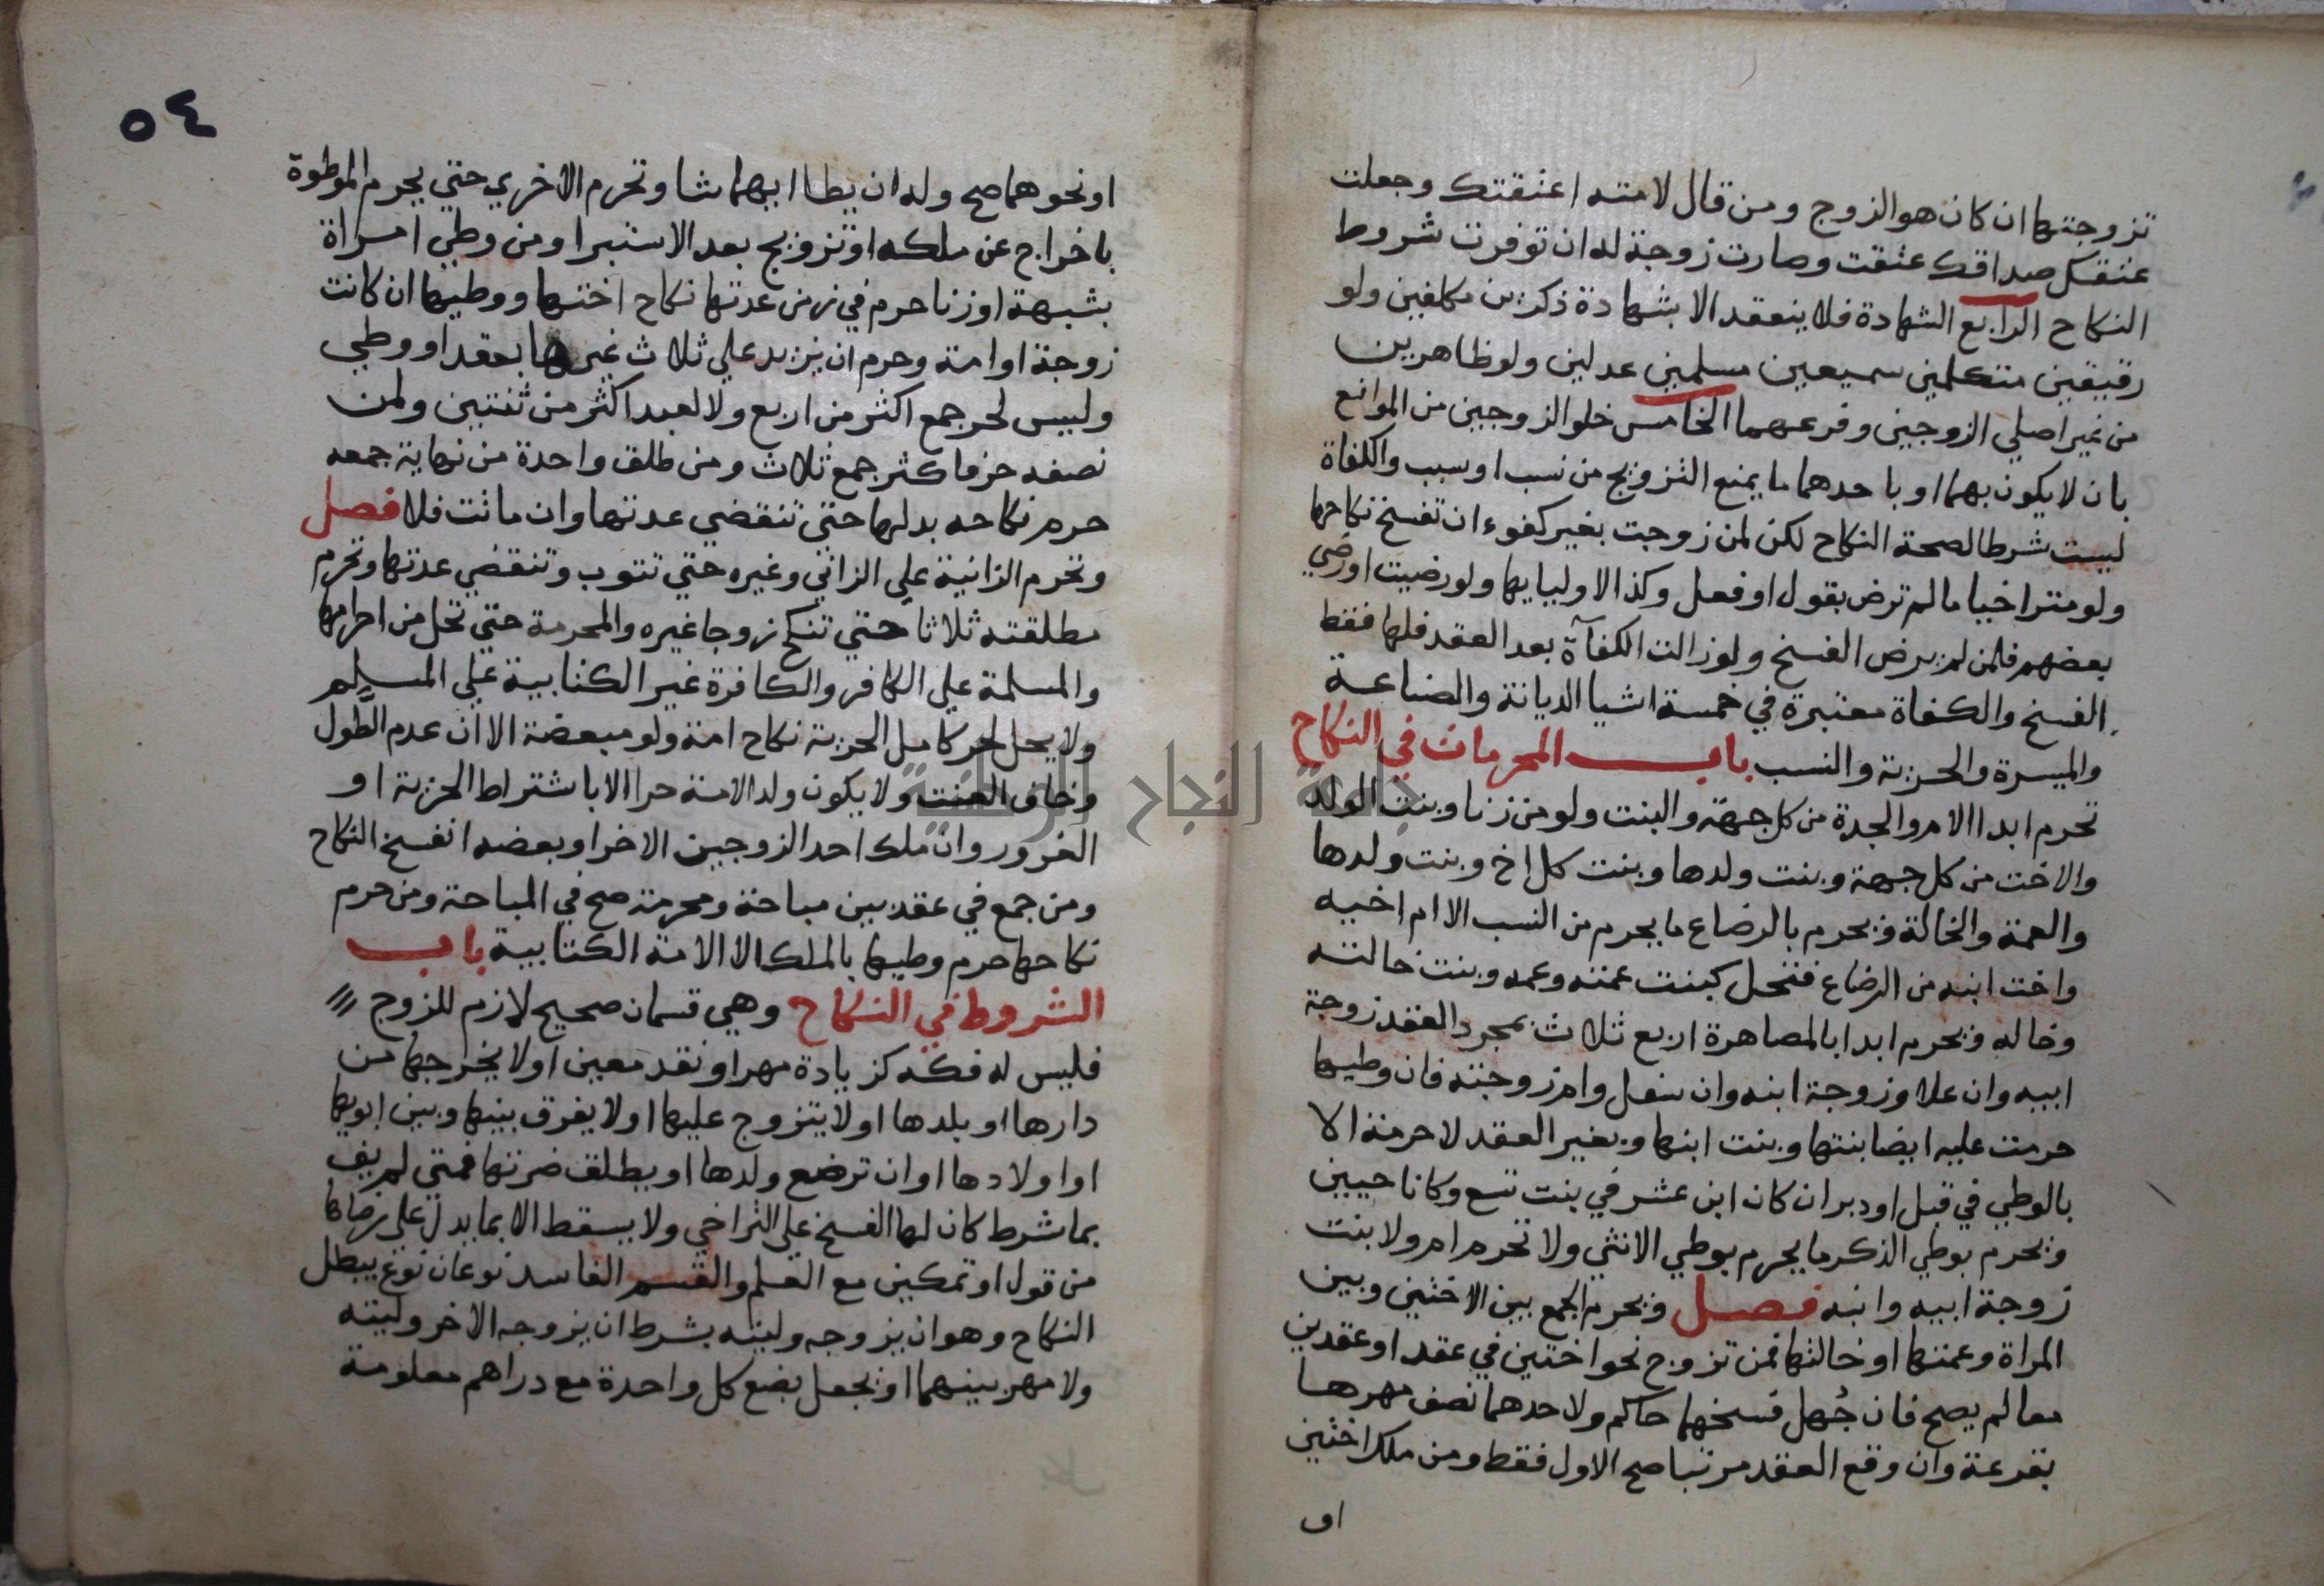 تزوجتها ان كان هو الزوج ومن قال لامته اعتقتك وجعلت
عتقك صداقك عتقت وصارت زوجة له ان توفرت شروط
النكاح الرابع الشهادة فلا ينعقد الا بشهادة ذكرين مكلفين ولو
رقيقين متكلمين سميعين مسلمين عدلين ولو ظاهرين
من غير اصلي الزوجين وفرعهما الخامس خلو الزوجين من الموانع
بان لا يكون بهما او باحدهما ما يمنع التزويج من نسب او سبب والكفاة
ليست شرطا لصحة النكاح لكن لمن زوجت بغير كفوء ان تفسخ نكاحها
ولو متراخيا ما لم ترض بقول او فعل وكذا الاوليايها ولو رضيت او رضي
بعضهم فلمن لم يرض الفسخ ولو زالت الكفآة بعد العقد فلها فقط
الفسخ والكفاة معتبرة في خمسة اشيا الديانة والصناعة
والميسرة والحرية والنسب باب المحرمات في النكاح
تحرم ابدا الام والجدة من كل جهة والبنت ولو من زنا وبنت الولد
والاخت من كل جهة وبنت ولدها وبنت كل اخ وبنت ولدها
والعمة والخالة ويحرم بالرضاع ما يحرم من النسب الا ام اخيه
واخت ابنه من الرضاع فتحل كبنت عمته وعمه وبنت خالته
وخاله ويحرم ابدا بالمصاهرة اربع ثلاث بمجرد العقد زوجة
ابيه وان علا وزوجة ابنه وان سفل وام زوجته فان وطيها
حرمت عليه ايضا بنتها وبنت ابنها وبغير العقد لا حرمة الا
بالوطي في قبل او دبر ان كان ابن عشر في بنت تسع وكانا حيين
ويحرم بوطي الذكر ما يحرم بوطي الانثي ولا تحرم ام ولا بنت
زوجة ابيه وابنه فصل ويحرم الجمع بين الاختين وبين
المراة وعمتها او خالتها فمن تزوج نحو اختين في عقد او عقدين
معا لم يصح فان جهل فسخهما حاكم ولاحدهما نصف مهرها
بقرعة وان وقع العقد مرتبا صح الاول فقط ومن ملك اختين
او
٥٤
او نحوهما صح وله ان يطا ايهما شا وتحرم الاخري حتي يحرم الموطوة
باخراج عن ملكه او تزويج بعد الاستبرا ومن وطي امراة
بشبهة او زنا حرم في زمن عدتها نكاح اختها ووطيها ان كانت
زوجة او امة وحرم ان يزيد علي ثلاث غيرها بعقد او وطي
وليس لحر جمع اكثر من اربع ولا لعبد اكثر من ثنتين ولمن
نصفه حر فاكثر جمع ثلاث ومن طلق واحدة من نهاية جمعه
حرم نكاحه بدلها حتي تنقضي عدتها وان ماتت فلا فصل
وتحرم الزانية علي الزاني وغيره حتي تتوب وتنقضي عدتها وتحرم
مطلقته ثلاثا حتي تنكح زوجا غيره والمحرمة حتي تحل من احرامها
والمسلمة علي الكافر والكافرة غير الكتابية علي المسلم
ولا يحل لحر كامل الحرية نكاح امة ولو مبعضة الا ان عدم الطول
وخاف العنت ولا يكون ولد الامة حرا الا باشتراط الحرية او
الغرور وان ملك احد الزوجين الاخر او بعضه انفسخ النكاح
ومن جمع في عقد بين مباحة ومحرمة صح في المباحة ومن حرم
نكاحها حرم وطيها بالملك الا الامة الكتابية باب
الشروط في النكاح وهي قسمان صحيح لازم للزوج
فليس له فكه كزيادة مهر او نقد معين او لا يخرجها من
دارها او بلدها او لا يتزوج عليها او لا يفرق بينها وبين ابويها
او اولادها او ان ترضع ولدها او يطلق ضرتها فمتي لم يف
بما شرط كان لها الفسخ علي التراخي ولا يسقط الا بما يدل علي رضاها
من قول او تمكين مع العلم والقسم الفاسد نوعان نوع يبطل
النكاح وهو ان يزوجه وليته بشرط ان يزوجه الاخر وليته
ولا مهر بينهما او يجعل بضع كل واحدة مع دراهم معلومة
جامعة النجاح الوطنية